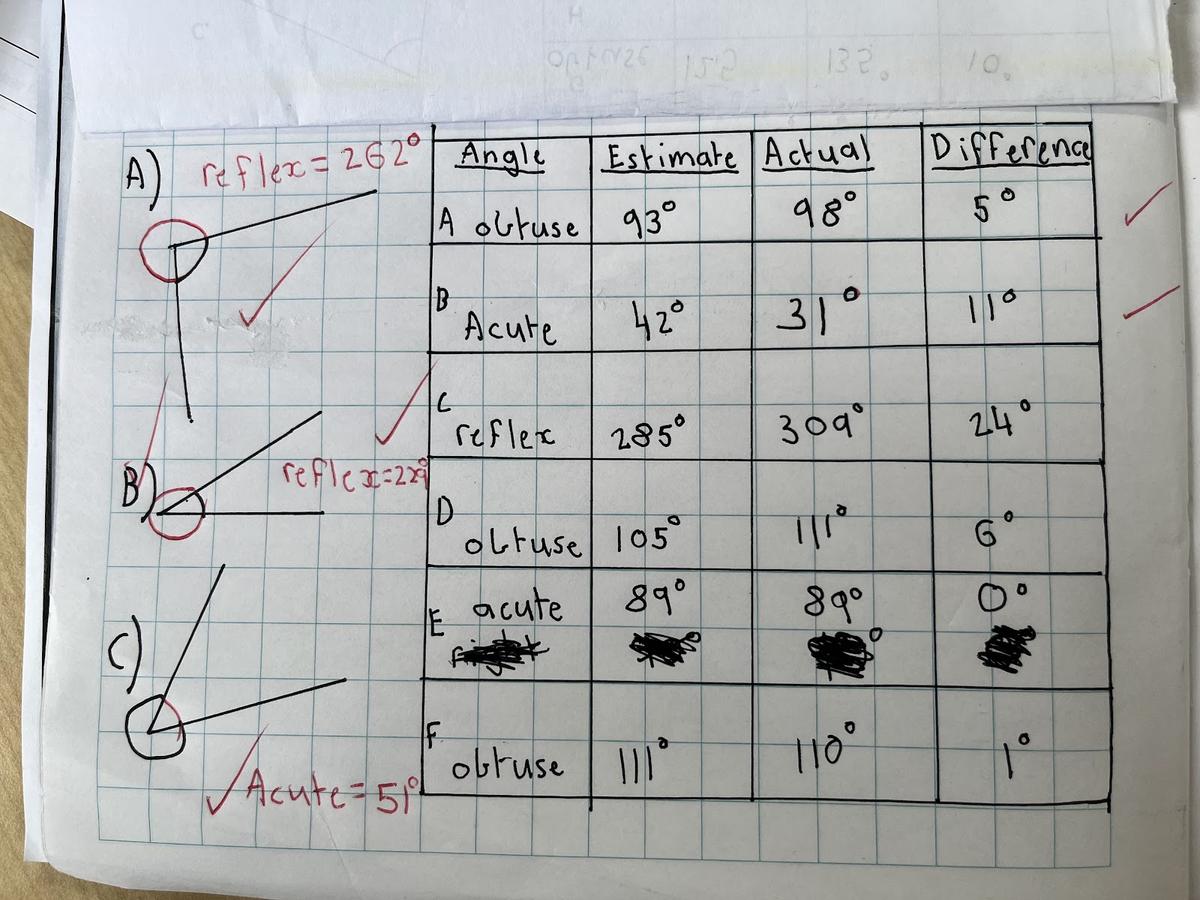 obtuse 125 135° 10°
A) reflex = 262°
B) reflex=229°
C)
Acute = 51°
Angle Estimate Actual Difference
A obtuse 93° 98° 5°
B Acute 42° 31° 11°
C reflex 285° 309° 24°
D obtuse 105° 111° 6°
E acute 89° 89° 0°
F obtuse 111° 110° 1°